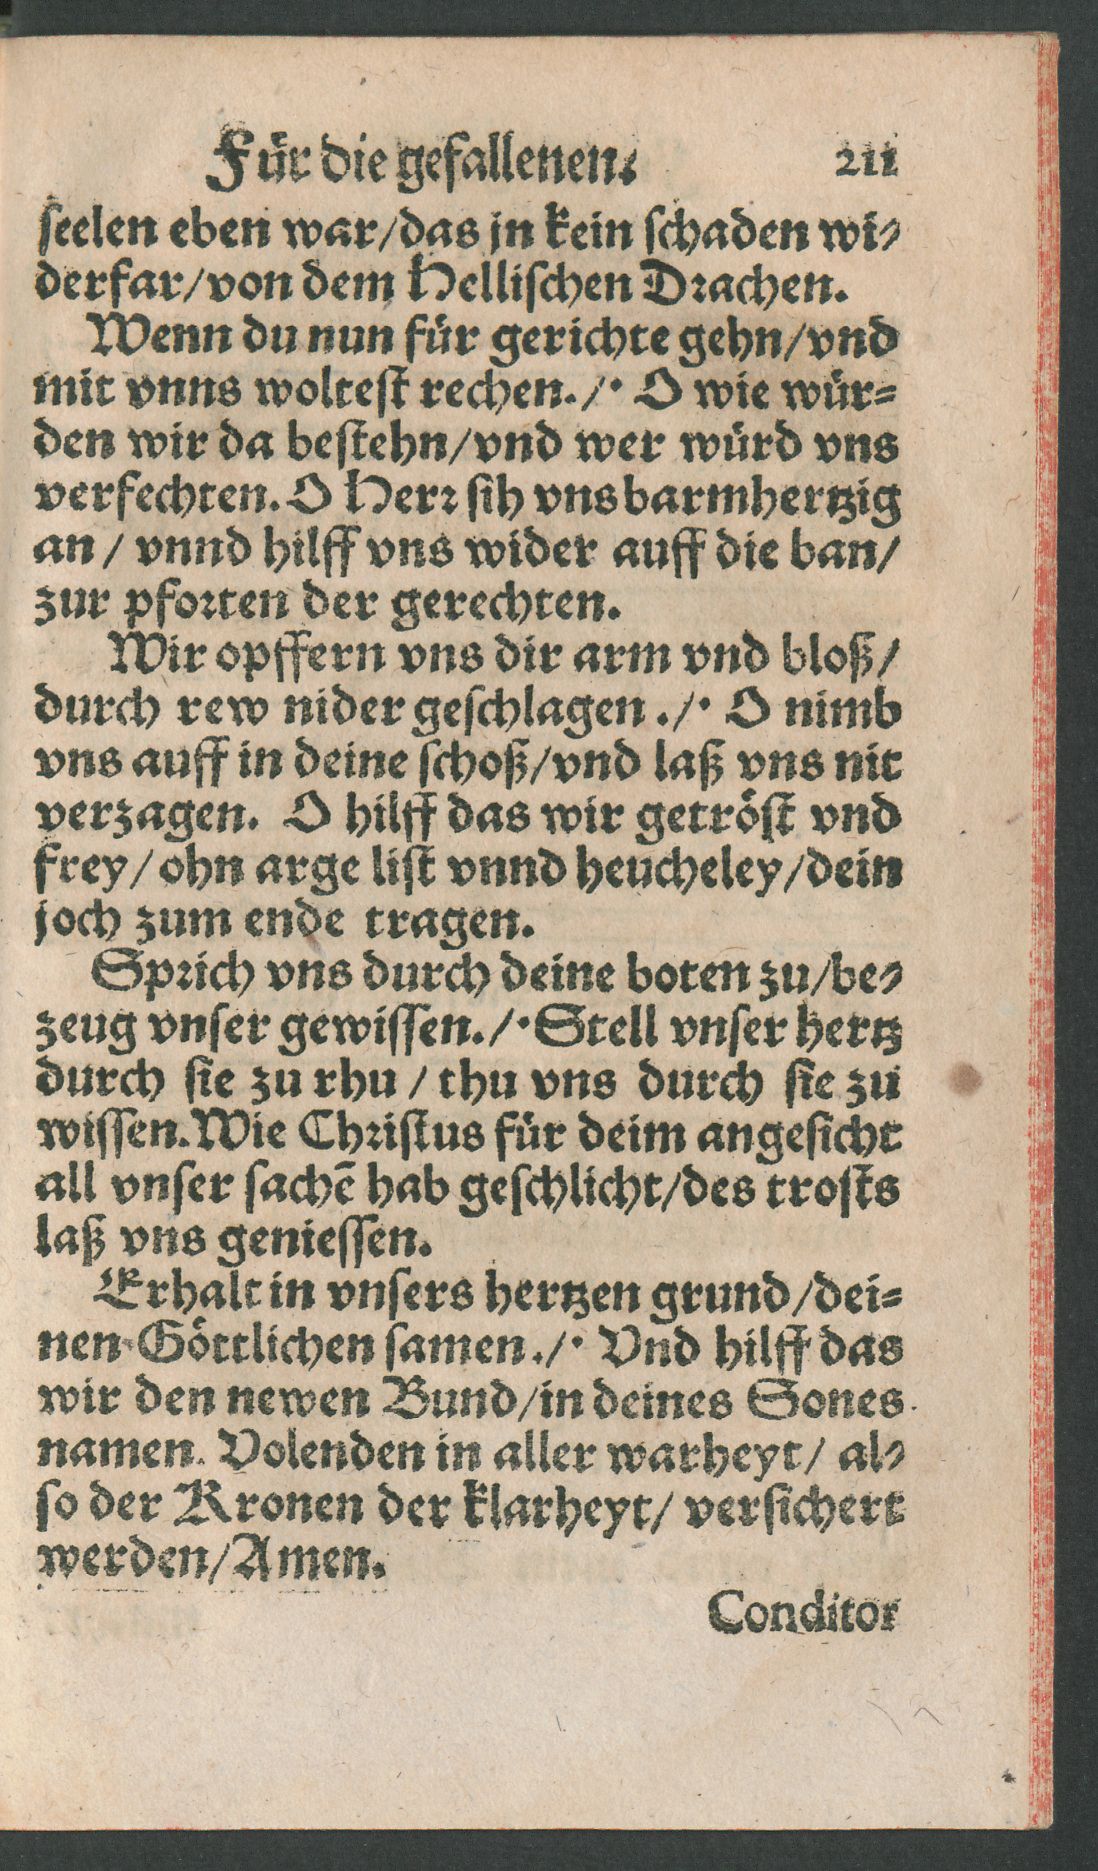 Für die gefallenen.
211
seelen eben war/das jn kein schaden wi-
derfar/von dem Hellischen Drachen.
Wenn du nun für gerichte gehn/vnd
mit vnns woltest rechen./· O wie wür-
den wir da bestehn/vnd wer würd vns
verfechten. O Herr sih vns barmhertzig
an/ vnnd hilff vns wider auff die ban/
zur pforten der gerechten.
Wir opffern vns dir arm vnd bloß/
durch rew nider geschlagen./· O nimb
vns auff in deine schoß/vnd laß vns nit
verzagen. O hilff das wir getröst vnd
frey/ohn arge list vnnd heucheley/dein
joch zum ende tragen.
Sprich vns durch deine boten zu/be-
zeug vnser gewissen./· Stell vnser hertz
durch sie zu rhu/ thu vns durch sie zu
wissen. Wie Christus für deim angesicht
all vnser sachē hab geschlicht/des trosts
laß vns geniessen.
Erhalt in vnsers hertzen grund/dei-
nen Göttlichen samen./· Vnd hilff das
wir den newen Bund/in deines Sones
namen. Volenden in aller warheyt/ al-
so der Kronen der klarheyt/ versichert
werden/Amen.
Conditor